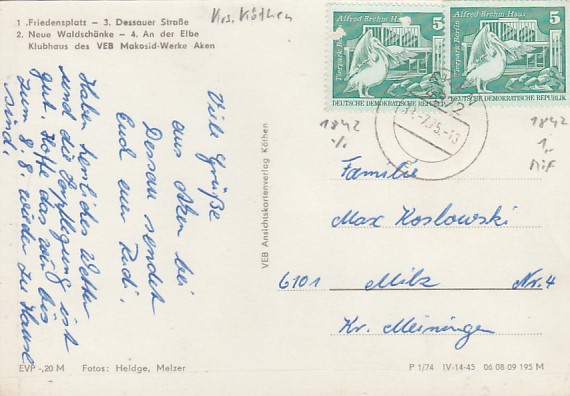 1 .Friedensplatz – 3. Dessauer Straße
2. Neue Waldschänke – 4. An der Elbe
Klubhaus des VEB Makosid-Werke Aken
Krs. Köthen
Viele Grüße
aus Aken bei
Dessau sendet
Euch euer Rudi.
Haben herrliches Wetter
und die Verpflegung ist
gut. Hoffe das wir bis
zum 8.8. wieder zu Hause
sind.
EVP -,20 M Fotos: Heldge, Melzer
VEB Ansichtskartenverlag Köthen
Alfred Brehm Haus 5
Tierpark Berlin
DEUTSCHE DEMOKRATISCHE REPUBLIK
Alfred Brehm Haus 5
Tierpark Berlin
DEUTSCHE DEMOKRATISCHE REPUBLIK
1842
1842
1,-
MiF
Familie
Max Koslowski
6101 Milz Nr. 4
Kr. Meiningen
P 1/74 IV-14-45 06 08 09 195 M